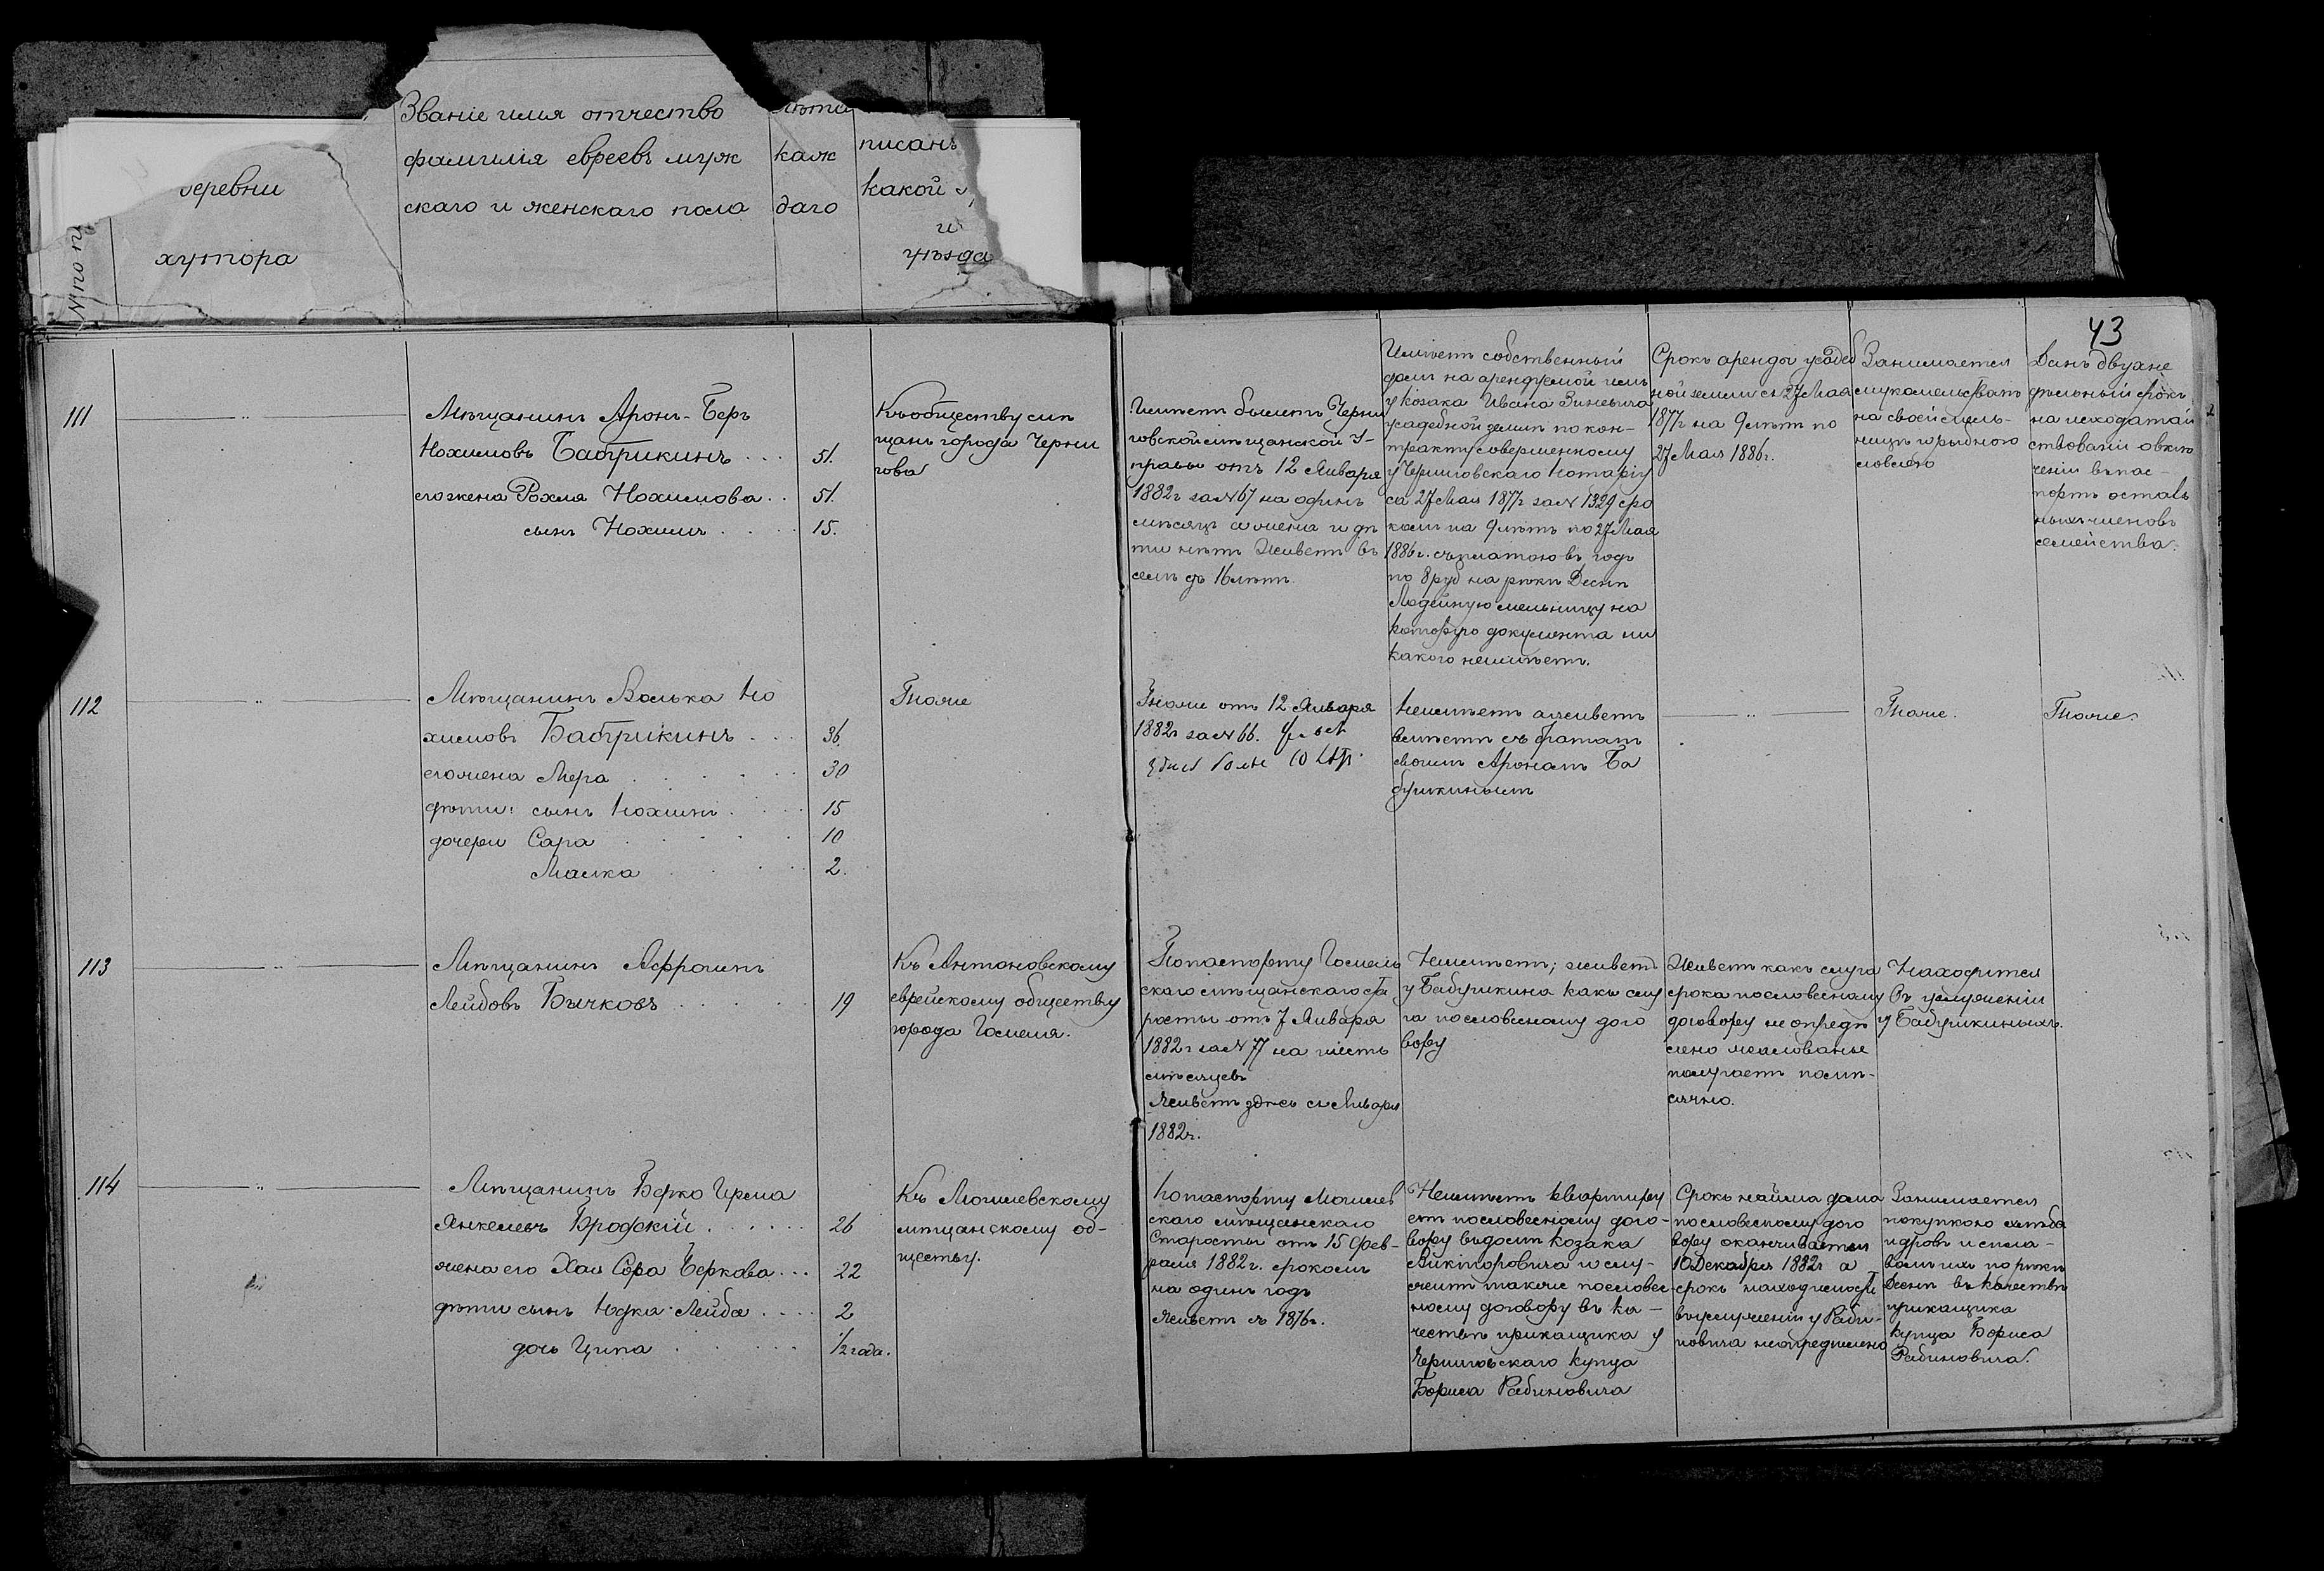 Званіе имя отчество
фамилія евреевъ муж
скаго и женскаго пола
Лѣта
каж
даго
писанъ
какой
и
уѣзда
деревни
хутора
№ по
43
111
Мѣщанинъ Аронъ-Беръ
Нохимовъ Бабрикинъ 51.
его жена Рохля Нохимова 51.
сынъ Нохимъ 15.
Къ обществу мѣ
щанъ города Черни
гова
Имѣетъ билетъ Черни
говской мѣщанской У-
правы отъ 12 Января
1882г за № 67 на одинъ
мѣсяцъ а жена и дѣ
ти нѣтъ Живетъ въ
селѣ съ 16 лѣтъ
Имѣетъ собственный
домъ на арендуемой имъ
у козака Ивана Зиневича
усадебной землѣ по кон-
тракту совершенному
у Черниговскаго Нотаріу
са 27 Мая 1877г за № 1329 сро
комъ на 9 лѣтъ по 27 Мая
1886г. съ платою въ годъ
по 8 руб на рѣкѣ Деснѣ
Лодейную мельницу на
которую документа ни
какого неимѣетъ.
Срокъ аренды усадеб
ной земли съ 27 Мая
1877г на 9 лѣтъ по
27 Мая 1886г.
Занимается
мукомельствомъ
на своей мель-
ницѣ и рыбною
ловлею
Данъ двухне
дѣльный срокъ
на исходатай
ствованіи о вклю
ченіи въ пас-
портъ осталь
ныхъ членовъ
семейства.
112
Мѣщанинъ Волька Но
химовъ Бабрикинъ 36.
его жена Мера 30
дѣти: сынъ Нохимъ 15
дочери Сара 10
Малка 2.
Тоже
Тоже отъ 12 Января
1882г за № 66.
Неимѣетъ а живетъ
вмѣстѣ съ братомъ
своимъ Арономъ Ба
бушкинымъ
Тоже.
Тоже.
113
Мѣщанинъ Афроимъ
Лейбовъ Бычковъ 19
Къ Антоновскому
еврейскому обществу
города Гомеля.
По паспорту Гомель
скаго мѣщанскаго ста
росты отъ 7 Января
1882г за № 77 на шесть
мѣсяцевъ
Живетъ здѣсь съ Января
1882г.
Неимѣетъ; живетъ
у Бабушкина какъ слу
га по словесному дого
вору
Живетъ какъ слуга
срока по словесному
договору не опредѣ
лено жалованье
получаетъ помѣ-
сячно.
Находится
въ услуженіи
у Бабушкиныхъ.
114
Мѣщанинъ Берко Ирма
Янкелевъ Бродскій 26
жена его Хая Сора Беркова 22
дѣти сынъ Юдка-Лейба 2
дочь Ципа 1/2 года.
Къ Могилевскому
мѣщанскому об-
ществу.
По паспорту Могилев
скаго мѣщанскаго
Старосты отъ 15 Фев-
раля 1882г. срокомъ
на одинъ годъ
Живетъ съ 1876г.
Неимѣетъ квартиру
етъ по словесному дого-
вору въ домѣ козака
Никторовича и слу-
житъ также по словес-
ному договору въ ка-
чествѣ прикащика у
Черниговскаго купца
Бориса Рабиновича
Срокъ найма дома
по словесному дого
вору оканчивается
10 Декабря 1882г а
срокъ находимости
въ услуженіи у Раби-
новича неопредѣлено
Занимается
покупкою хлѣба
и дровъ и спла-
вомъ ихъ по рѣкѣ
Деснѣ въ качествѣ
прикащика
купца Бориса
Рабиновича.